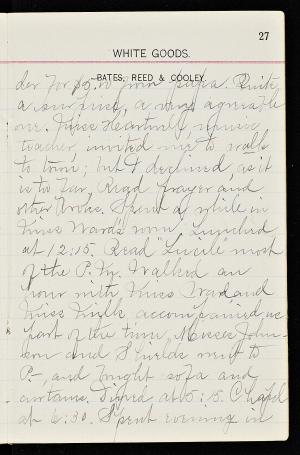 27
WHITE GOODS.
—BATES, REED & COOLEY.
der for $5.00 from papa. Quite
a surprise, a very agreeable
one. Miss Heartwell, music
teacher invited me to walk
to town; but I declined, as it
is to far. Read prayer and
other books. Spent a while in
Miss Ward's room. Lunched
at 12:15. Read "Lucile" most
of the P.M. Walked an
hour with Miss Ward and
Miss accompanied us
part of the time. Misses John-
son and Shields went to
P—, and bought sofa and
curtains. Dined at 5:15. Chapel
at 6:30. Spent evening in